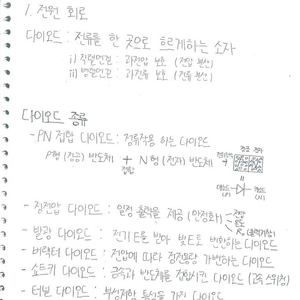 1. 전원 회로
다이오드 : 전류를 한 곳으로 흐르게하는 소자
i) 직렬연결 : 과전압 보호 (전압 분산)
ii) 병렬연결 : 과전류 보호 (전류 분산)
다이오드 종류
- PN 접합 다이오드 : 정류작용 하는 다이오드
P형 (정공) 반도체 + N형 (전자) 반도체
접합
정공 전자
- 정전압 다이오드 : 일정 출력을 제공 (안정화)
- 발광 다이오드 : 전기E를 받아 빛E로 변환하는 다이오드
- 버랙터 다이오드 : 전압에 따라 정전용량 가변하는 다이오드
- 쇼트키 다이오드 : 금속과 반도체를 접합시킨 다이오드 (고속 스위칭)
- 터널 다이오드 : 부성저항 특성을 가진 다이오드